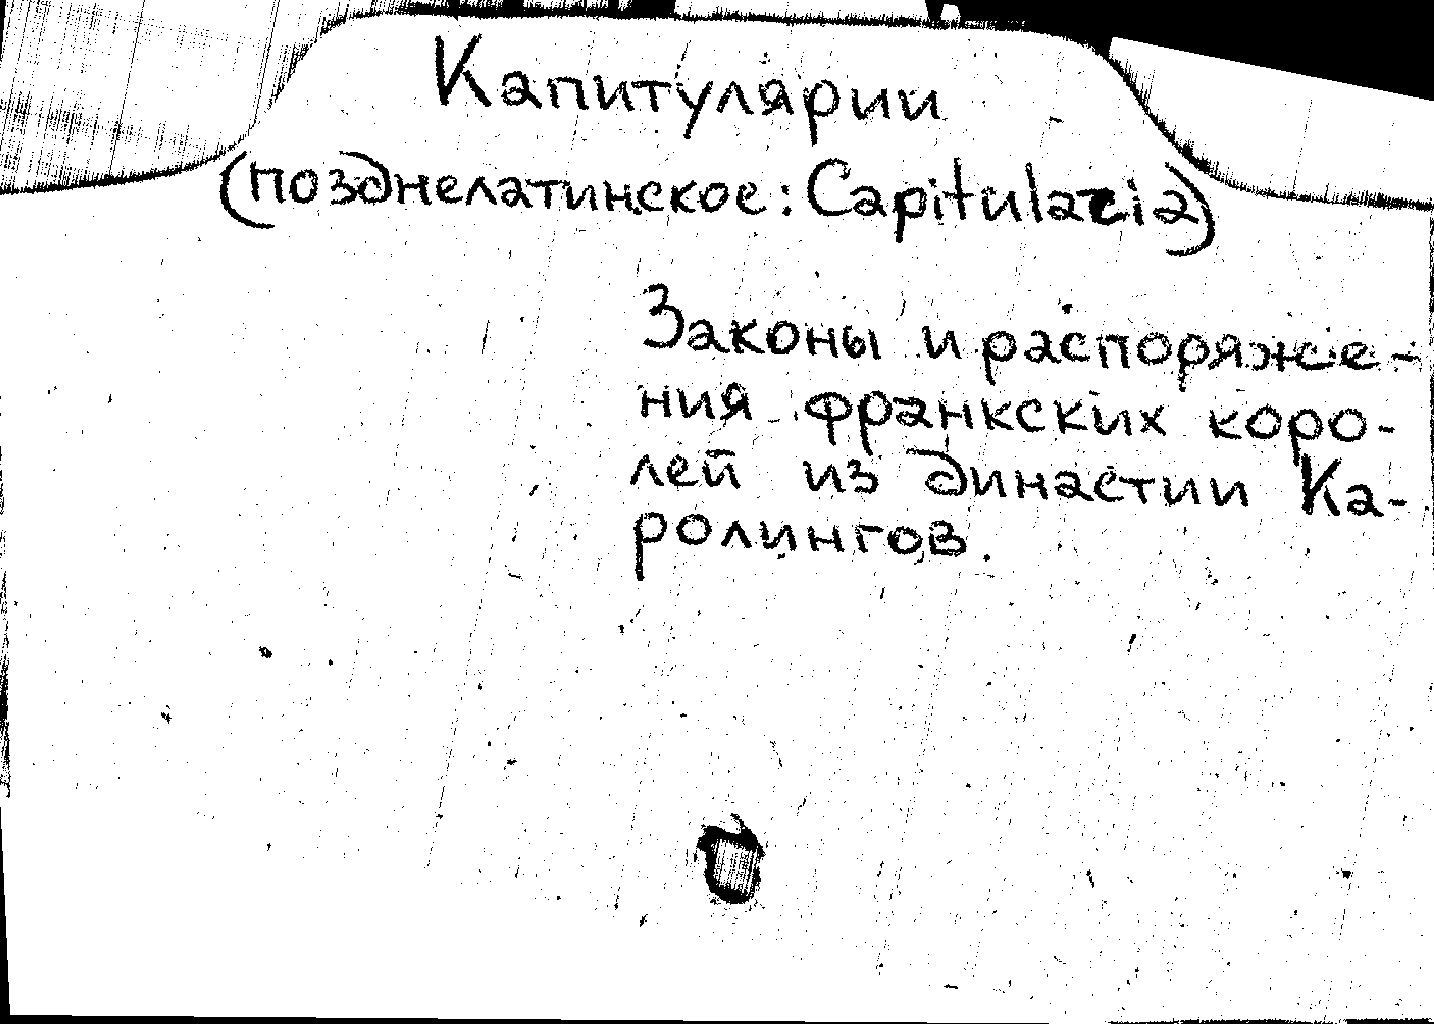 Капитулярии
(позднелатинское: Capitularia)
Законы и распоряже-
ния франкских коро-
лей из династии Ка-
ролингов.